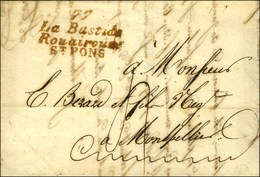 77
La Bastide
Rouairoux
St PONS
à Monsieur
E. Berard et fils Negt
à Montpellier